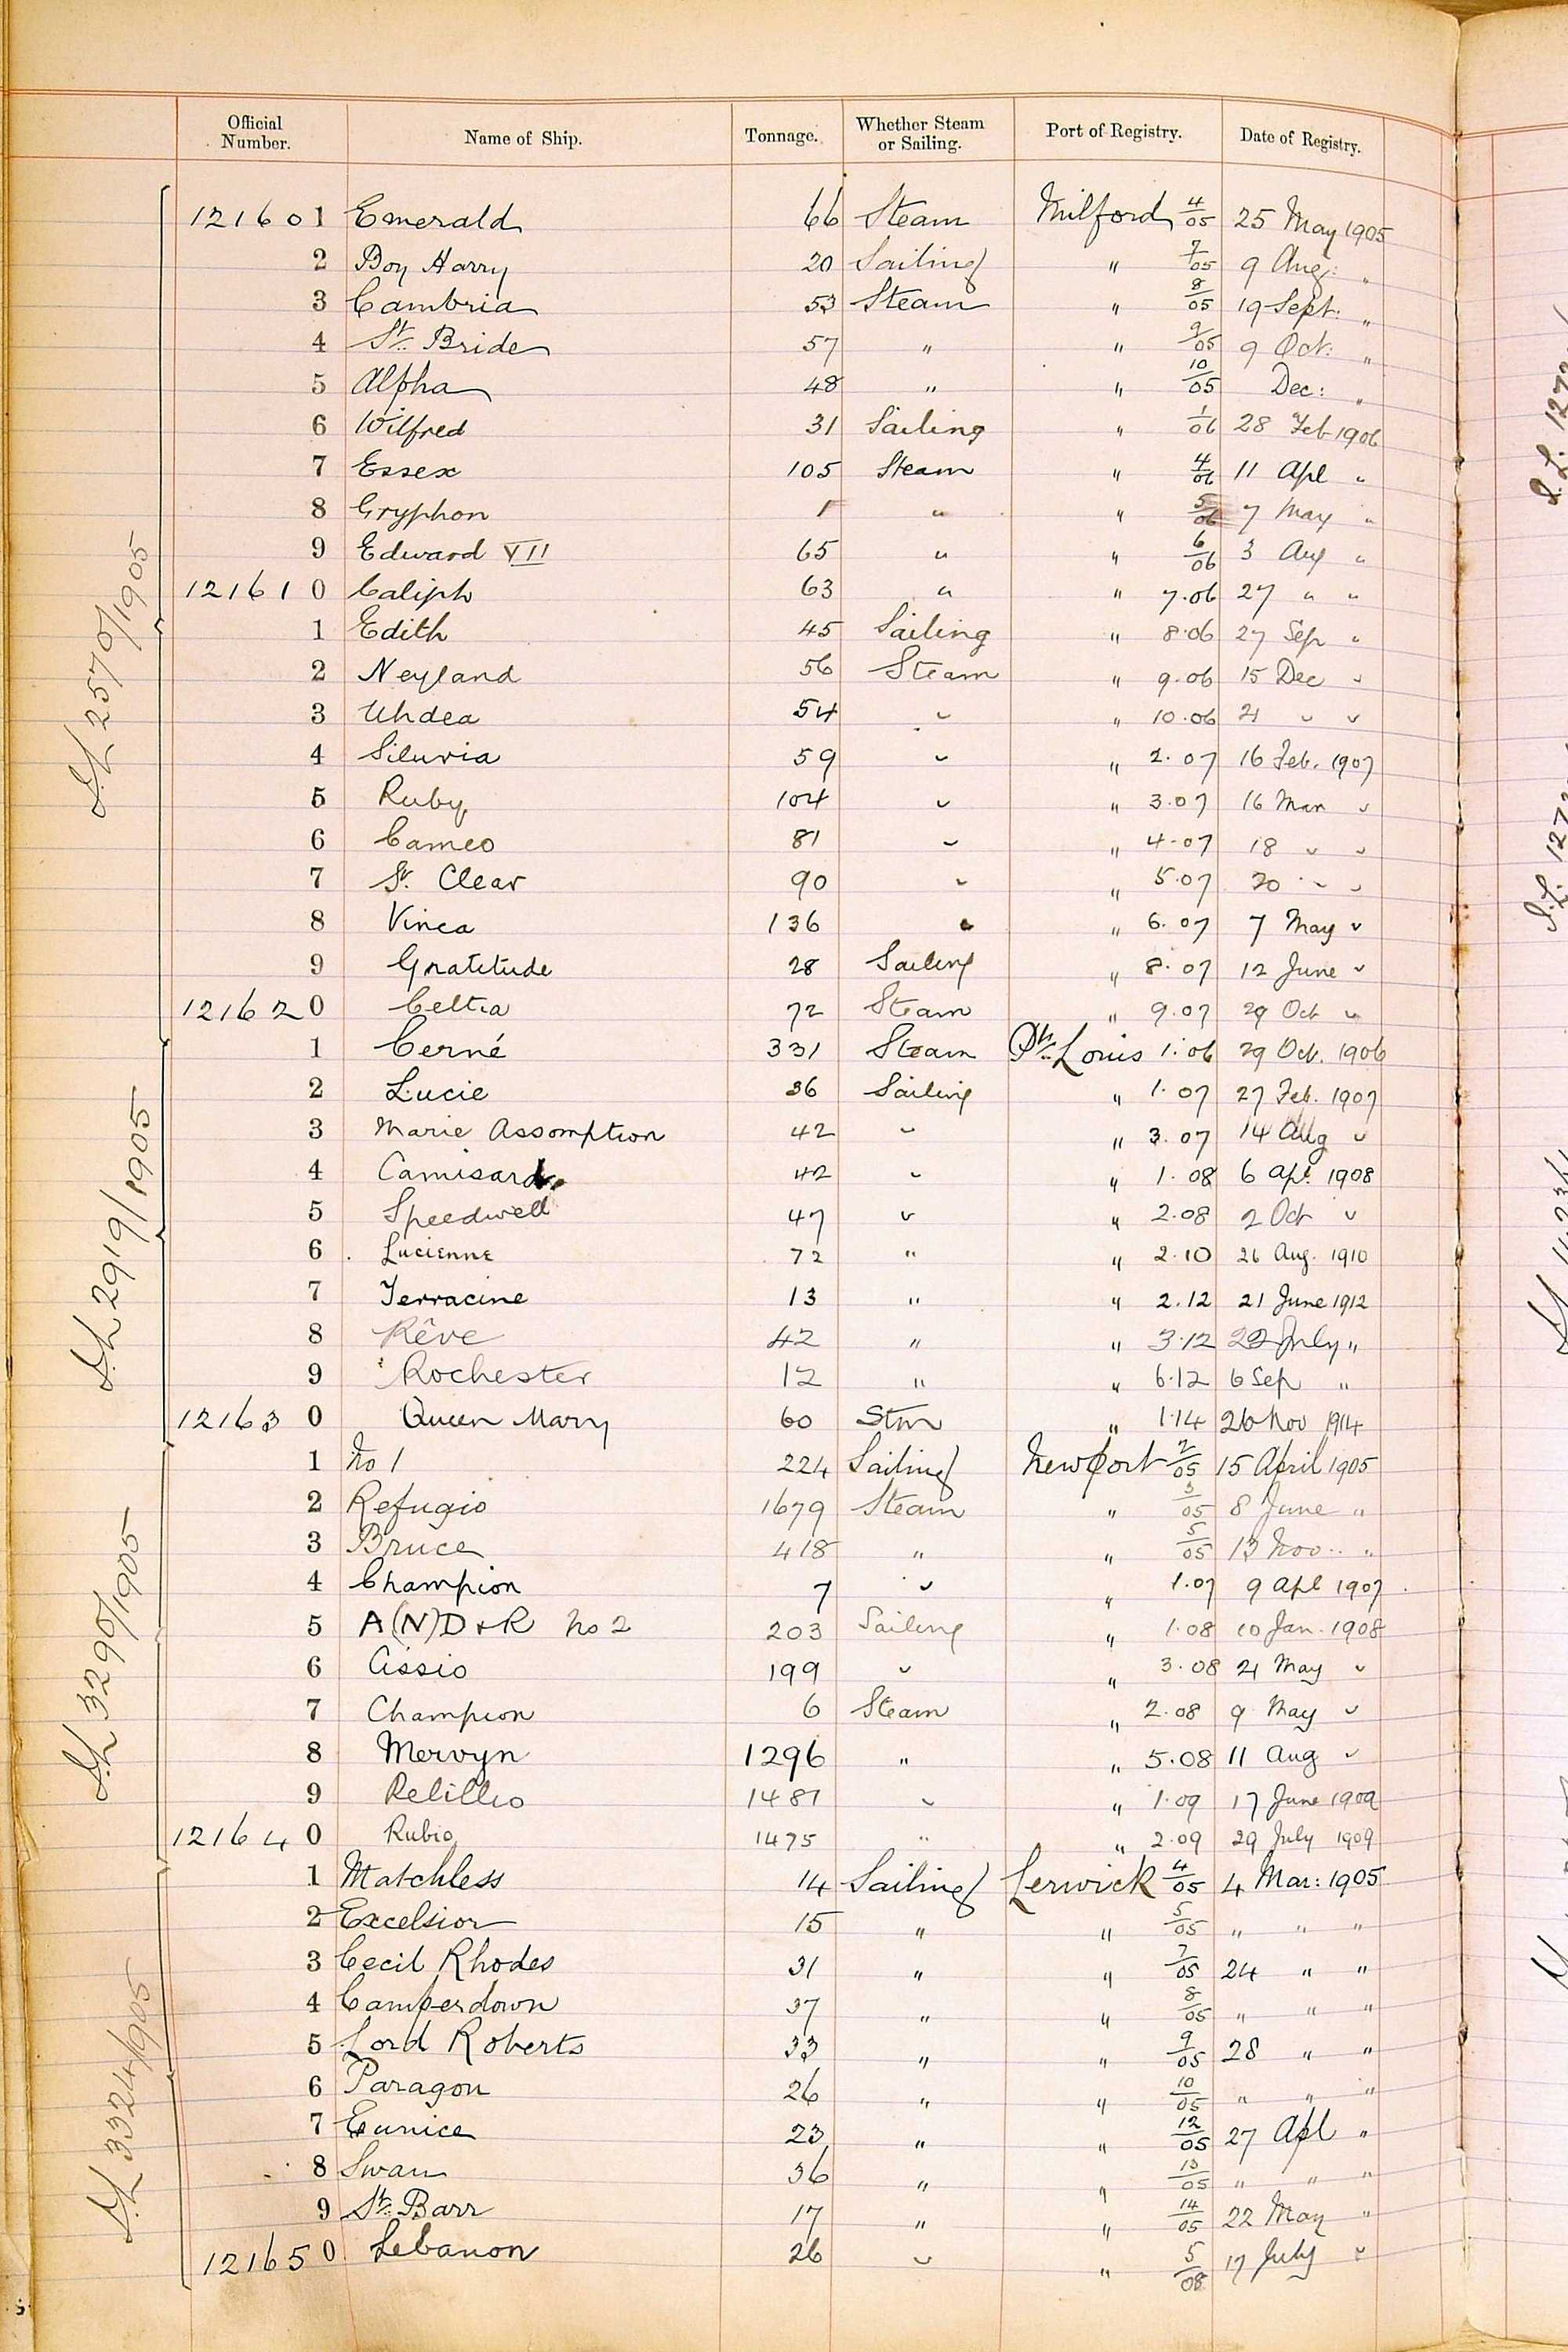 Official Number. Name of Ship. Tonnage. Whether Steam or Sailing. Port of Registry. Date of Registry.
121601 Emerald 66 Steam Milford 4/05 25 May 1905
2 Boy Harry 20 Sailing " 7/05 9 Aug: "
3 Cambria 53 Steam " 8/05 19 Sept: "
4 St. Bride 57 " " 9/05 9 Oct: "
5 Alpha 48 " " 10/05 Dec: "
6 Wilfred 31 Sailing " 1/06 28 Feb 1906
7 Essex 105 Steam " 4/06 11 Apl "
8 Gryphon 1 " " 5/06 7 May "
9 Edward VII 65 " " 6/06 3 Aug "
121610 Caliph 63 " " 7.06 27 " "
1 Edith 45 Sailing " 8.06 27 Sep "
2 Neyland 56 Steam " 9.06 15 Dec "
3 Uhdea 54 " " 10.06 21 " "
4 Siluria 59 " " 2.07 16 Feb. 1907
5 Ruby 104 " " 3.07 16 Mar "
6 Cameo 81 " " 4.07 18 " "
7 St. Clear 90 " " 5.07 20 " "
8 Vinca 136 " " 6.07 7 May "
9 Gratitude 28 Sailing " 8.07 12 June "
121620 Celtia 72 Steam " 9.07 29 Oct "
1 Cerné 331 Steam Pt. Louis 1.06 29 Oct. 1906
2 Lucie 36 Sailing " 1.07 27 Feb. 1907
3 Marie Assomption 42 " " 3.07 14 Aug "
4 Camisard 42 " " 1.08 6 Apl. 1908
5 Speedwell 47 " " 2.08 2 Oct "
6 Lucienne 72 " " 2.10 26 Aug. 1910
7 Terracine 13 " " 2.12 21 June 1912
8 Rêve 42 " " 3.12 22 July "
9 Rochester 12 " " 6.12 6 Sep "
121630 Queen Mary 60 Stm " 1.14 26 Nov 1914
1 No 1 224 Sailing Newport 2/05 15 April 1905
2 Refugio 1679 Steam " 3/05 8 June "
3 Bruce 418 " " 5/05 13 Nov. "
4 Champion 7 " " 1.07 9 Apl 1907
5 A(N)D & R No 2 203 Sailing " 1.08 10 Jan. 1908
6 Cissio 199 " " 3.08 21 May "
7 Champion 6 Steam " 2.08 9 May "
8 Mervyn 1296 " " 5.08 11 Aug "
9 Relillio 1487 " " 1.09 17 June 1909
121640 Rubio 1475 " " 2.09 29 July 1909
1 Matchless 14 Sailing Lerwick 4/05 4 Mar: 1905
2 Excelsior 15 " " 5/05 " " "
3 Cecil Rhodes 31 " " 7/05 24 " "
4 Camperdown 37 " " 8/05 " " "
5 Lord Roberts 33 " " 9/05 28 " "
6 Paragon 26 " " 10/05 " " "
7 Eunice 23 " " 12/05 27 Apl "
8 Swan 36 " " 13/05 " " "
9 St. Barr 17 " " 14/05 22 May "
121650 Lebanon 26 " " 5/08 17 July "
2570/1905
2919/1905
3290/1905
3324/1905